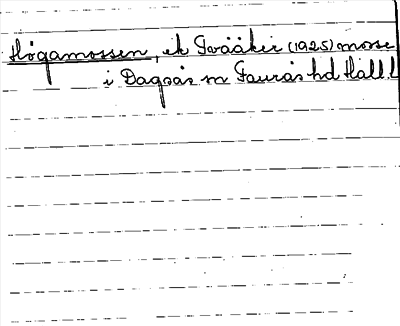 Högamossen, ek Tvååker (1925) mosse
i Dagsås sn Faurås hd Hall. l